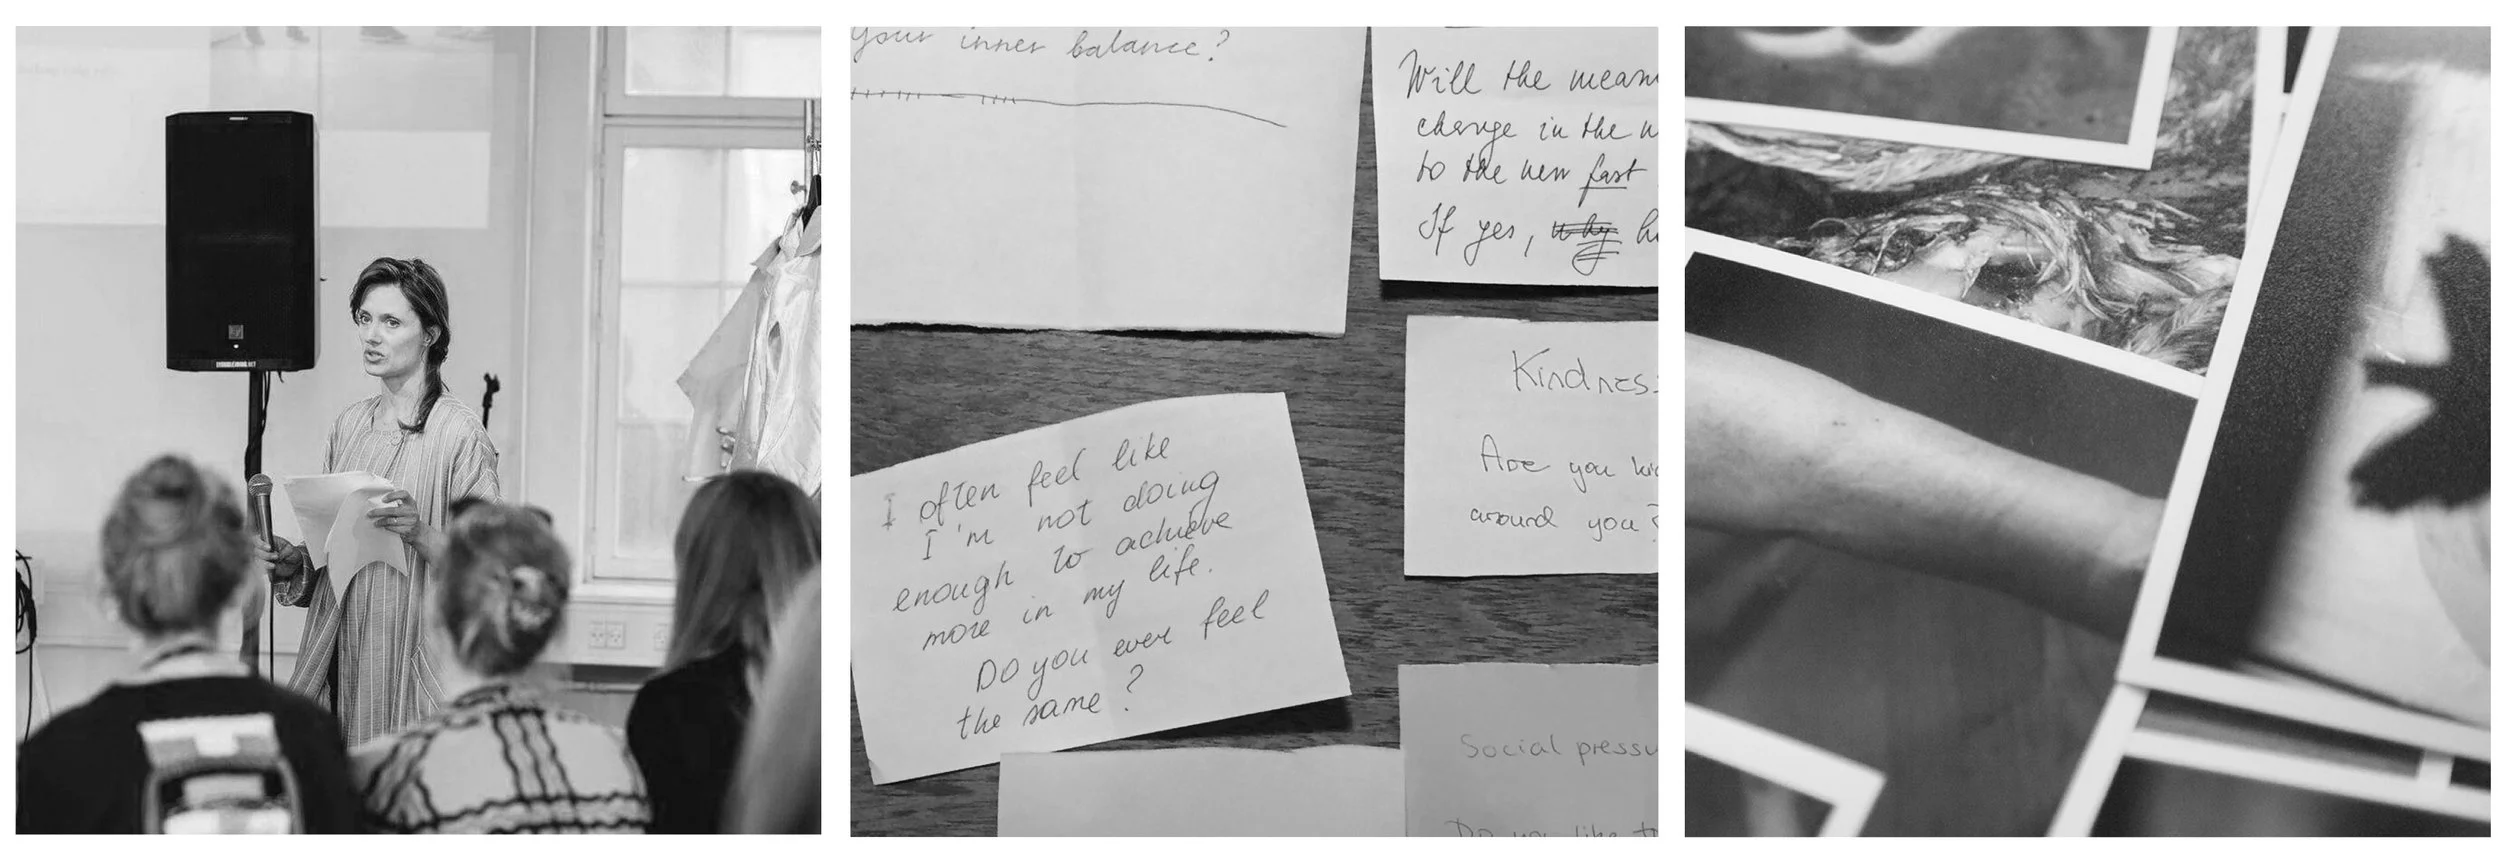 your inner balance?
Will the mean
change in the
to the new fast
If yes, why
Kindness
Are you
around you?
I often feel like
I'm not doing
enough to achieve
more in my life.
Do you ever feel
the same?
Social pressu
Do you like t